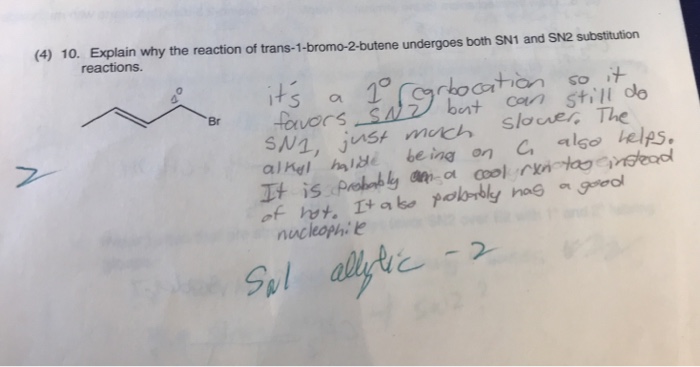 (4) 10. Explain why the reaction of trans-1-bromo-2-butene undergoes both SN1 and SN2 substitution
reactions.
1°
Br
2
it's a 1° carbocation so it
favors SN2 but can still do
SN1, just much slower. The
being on C1 also helps.
It is probably a cool rxn instead
of hot. It also probably has a good
nucleophile
SN1 allylic -2